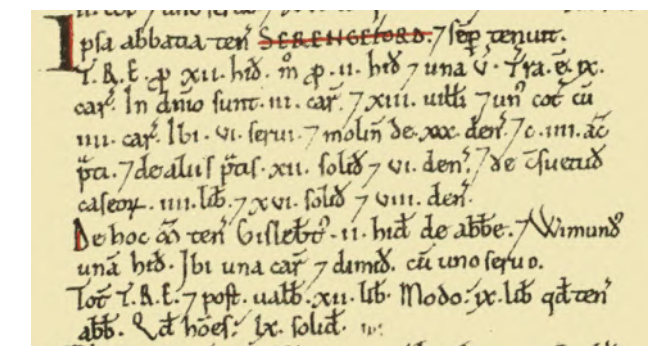 Ipsa abbatia teñ SERENGEFORD. ⁊ sēp tenuit.
T. R. E. ꝑ xii. hid̄. m̊ ꝑ .ii. hid̄ ⁊ una v̄. Tra. ē. ix.
car̄. In dñio sunt. iii. car̄. ⁊ xiii. uilłi ⁊ un̊ cot̄ cū
iiii. car̄. Ibi. vi. serui. ⁊ moliñ de xxx. deñ. ⁊ c. iiii. ac̄
p̃ti. ⁊ de aliis p̃tis. xii. solid̄ ⁊ vi. deñ. ⁊ de c̄suetud̄
caseoꝝ. iiii. lib̄. ⁊ xvi. solid̄ ⁊ viii. deñ.
De hoc m̄ teñ Gislebt̄. ii. hid̄ de abb̄e. ⁊ Wimund̄
unā hid̄. Ibi una car̄ ⁊ dimid̄. cū uno seruo.
Tot̄ T. R. E. ⁊ post. ualb̄. xii. lib̄. Modo: ix. lib̄ qd̄ teñ
abb̄. Qd̄ hōes: lx. solid̄.